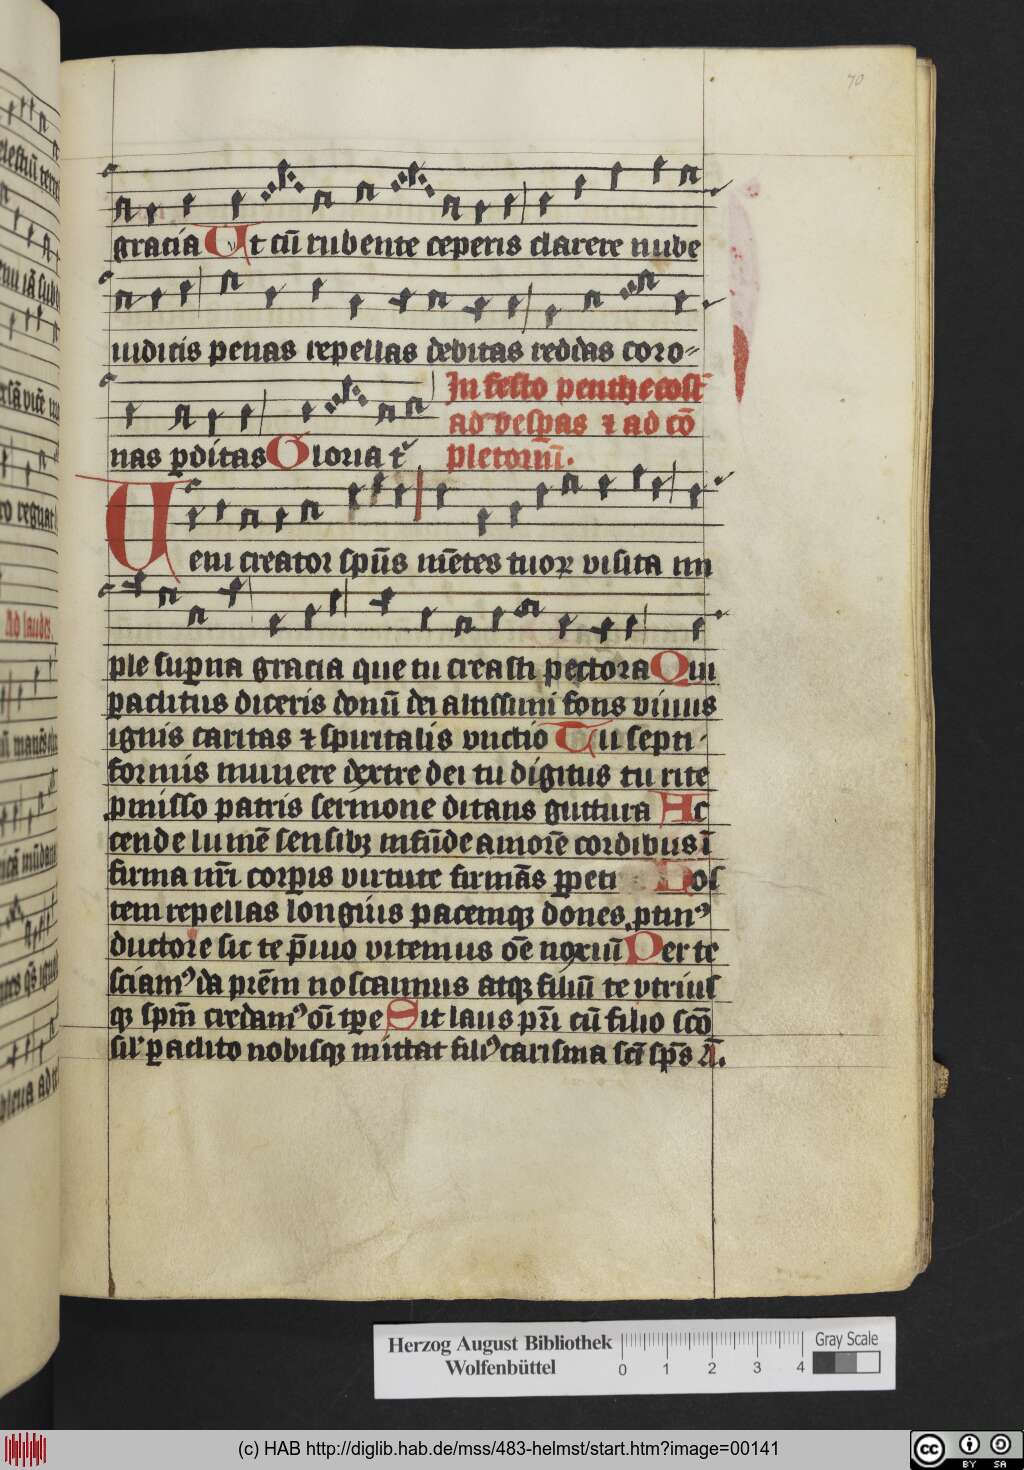 70
gracia Ut cū rubente ceperis clarere nube
iudicis penas repellas debitas reddas coro⸗
nas ꝑditas Gloria tͥ
In festo penthecost̄
ad vesꝑas ⁊ ad cō
pletoriū.
Veni creator spūs mētes tuoꝝ visita im
ple suꝑna gracia que tu creasti pectora Qui
paclitus diceris donū dei altissimi fons viuus
ignis caritas ⁊ spiritalis vnctio Tu septi
formis munere dextre dei tu digitus tu rite
ꝓmisso patris sermone ditans guttura Ac
cende lumē sensibꝫ infūde amorē cordibus ī
firma nr̄i corꝑis virtute firmās ꝑpeti Hos
tem repellas longius pacemqꝫ dones ꝓtinꝰ
ductore sic te p̄uio vitemus oē noxiū Per te
sciamꝰ da prēm noscamus atqꝫ filiū te vtrius
qꝫ spm̄ credamꝰ oī tꝑe Sit laus pr̄i cū filio scō
sil' paclito nobisqꝫ mittat filiꝰ carisma scī spūs A.
Ad laudes
Herzog August Bibliothek
Wolfenbüttel
0 1 2 3 4
Gray Scale
(c) HAB http://diglib.hab.de/mss/483-helmst/start.htm?image=00141
cc BY SA